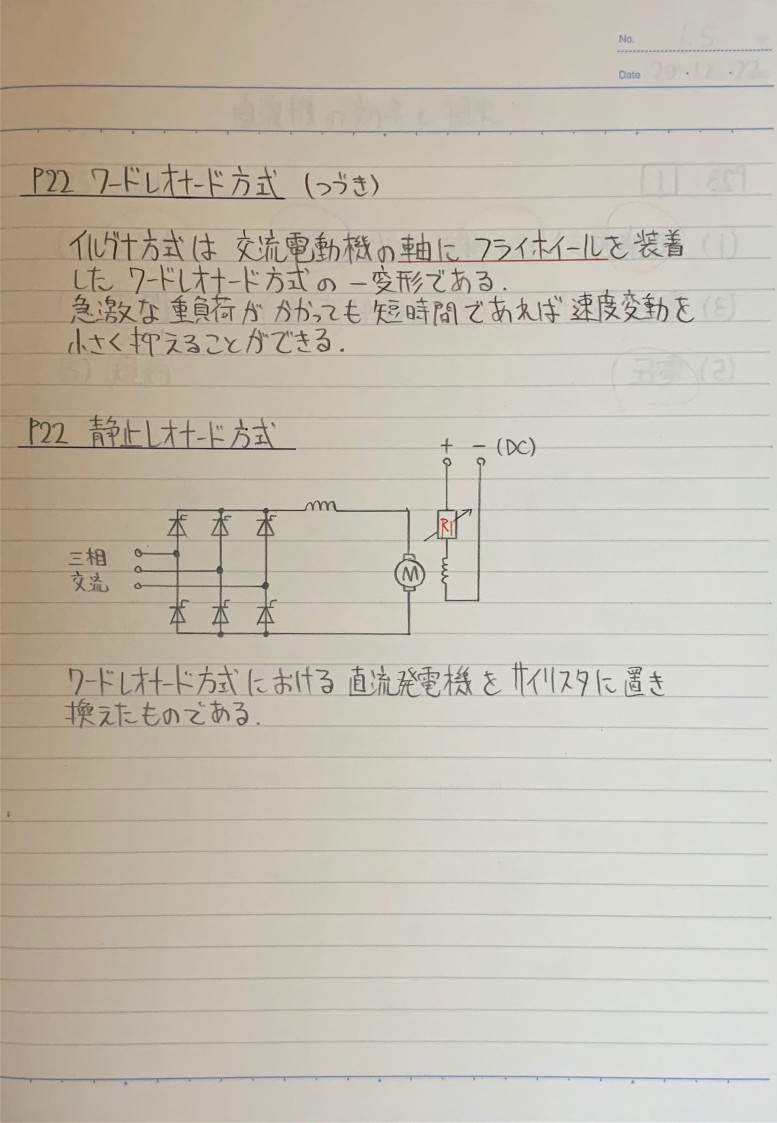 No.
Date
P22 ワードレオナード方式 (つづき)
イルグナ方式は 交流電動機の軸に フライホイールを装着
した ワードレオナード方式の 一変形である.
急激な重負荷が かかっても 短時間であれば 速度変動を
小さく抑えることができる.
P22 静止レオナード方式
+ - (DC)
R1
三相
交流
M
ワードレオナード方式における 直流発電機を サイリスタに置き
換えたものである.